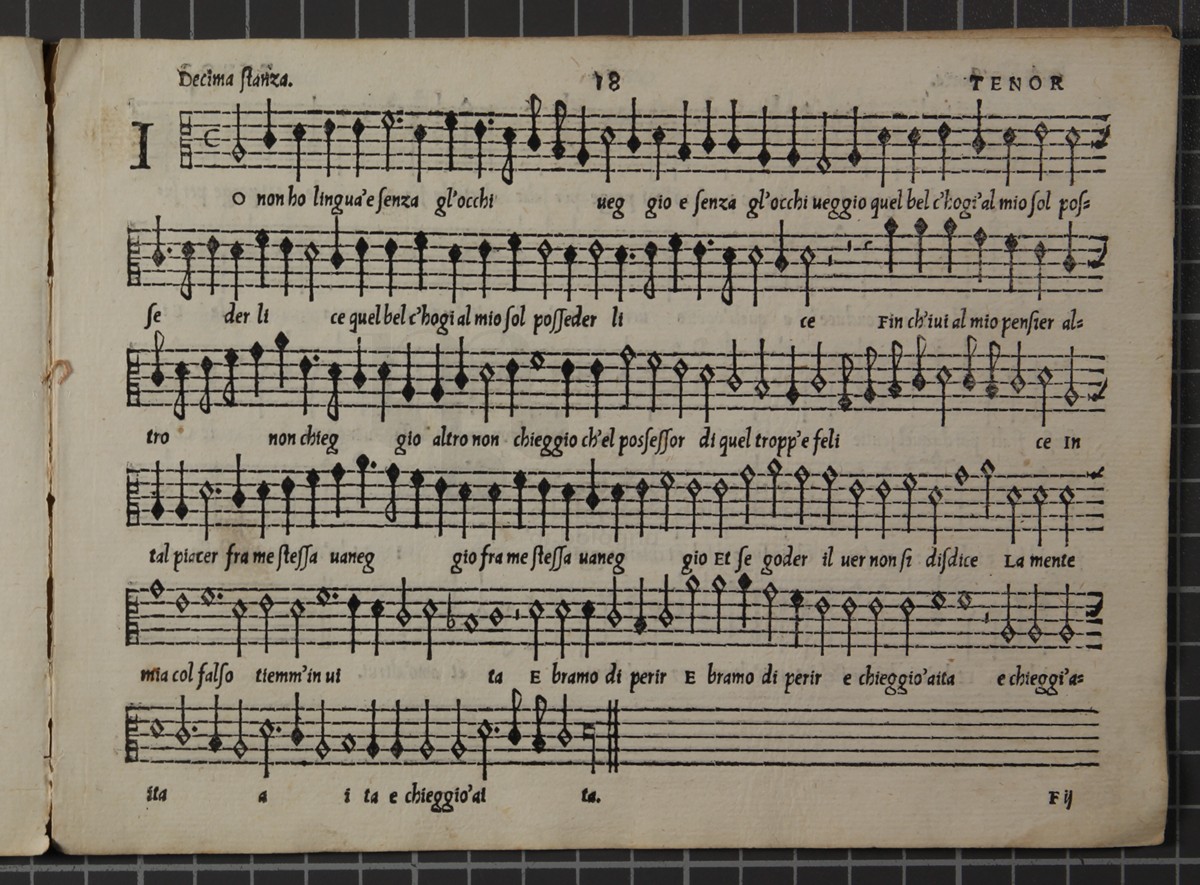 Decima ſtanza. 18 TENOR
I
O non ho lingua'e ſenza gl'occhi ueg gio e ſenza gl'occhi ueggio quel bel c'hogi'al mio ſol poſ=
ſe der li ce quel bel c'hogi al mio ſol poſſeder li ce Fin ch'iui al mio penſier al=
tro non chieg gio altro non chieggio ch'el poſſeſſor di quel tropp'e feli ce In
tal piacer fra me ſteſſa uaneg gio fra me ſteſſa uaneg gio Et ſe goder il uer non ſi diſdice La mente
mia col falſo tiemm'in ui ta E bramo di perir E bramo di perir e chieggio'aita e chieggi'a=
ita a i ta e chieggio'ai ta.
F ij